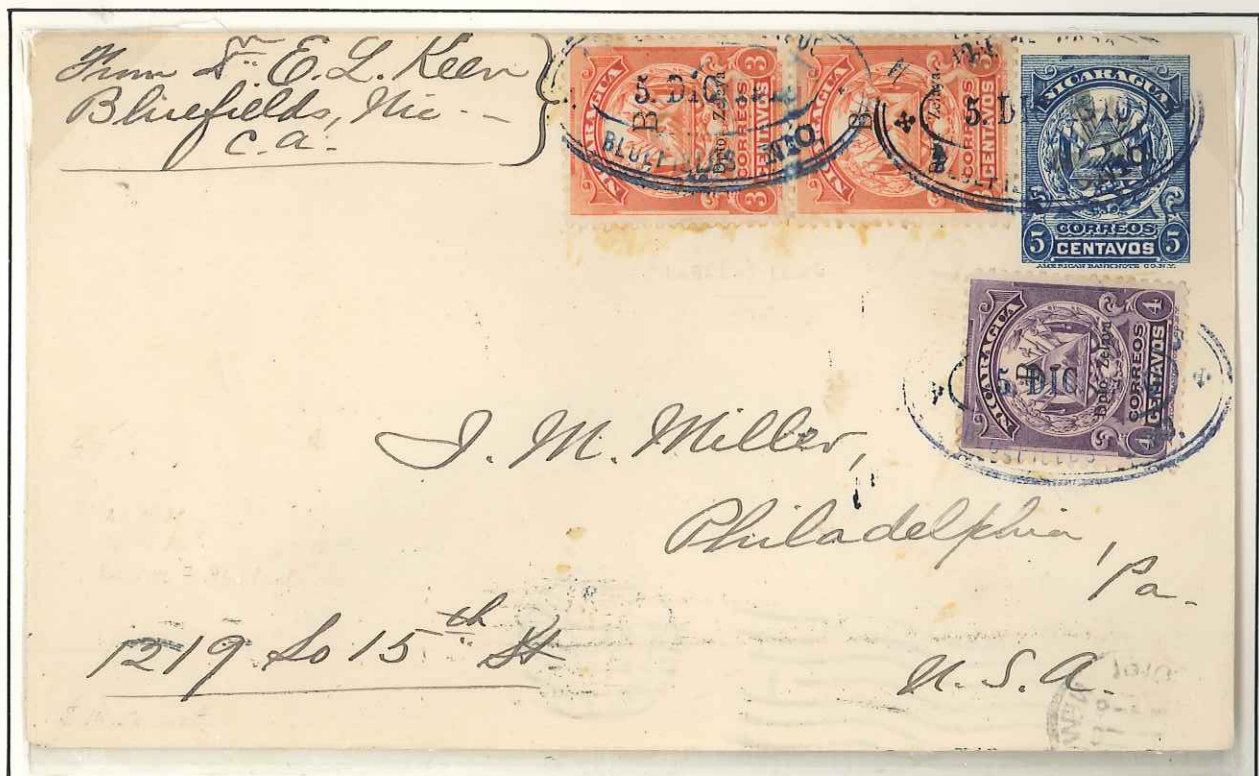 From Dr. E. L. Keen
Bluefields, Nic -
C. A.
5. DIC
BLUEFIELDS NIC.
NICARAGUA
B
Dpto Zelaya
CORREOS
3 CENTAVOS 3
NICARAGUA
B
Dpto Zelaya
CORREOS
3 CENTAVOS 3
5. DIC
NICARAGUA
CORREOS
5 CENTAVOS 5
AMERICAN BANKNOTE CO. N.Y.
NICARAGUA
B
Dpto Zelaya
CORREOS
4 CENTAVOS 4
5. DIC.
J. M. Miller,
Philadelphia,
Pa.
1219 So 15th St
U. S. A.